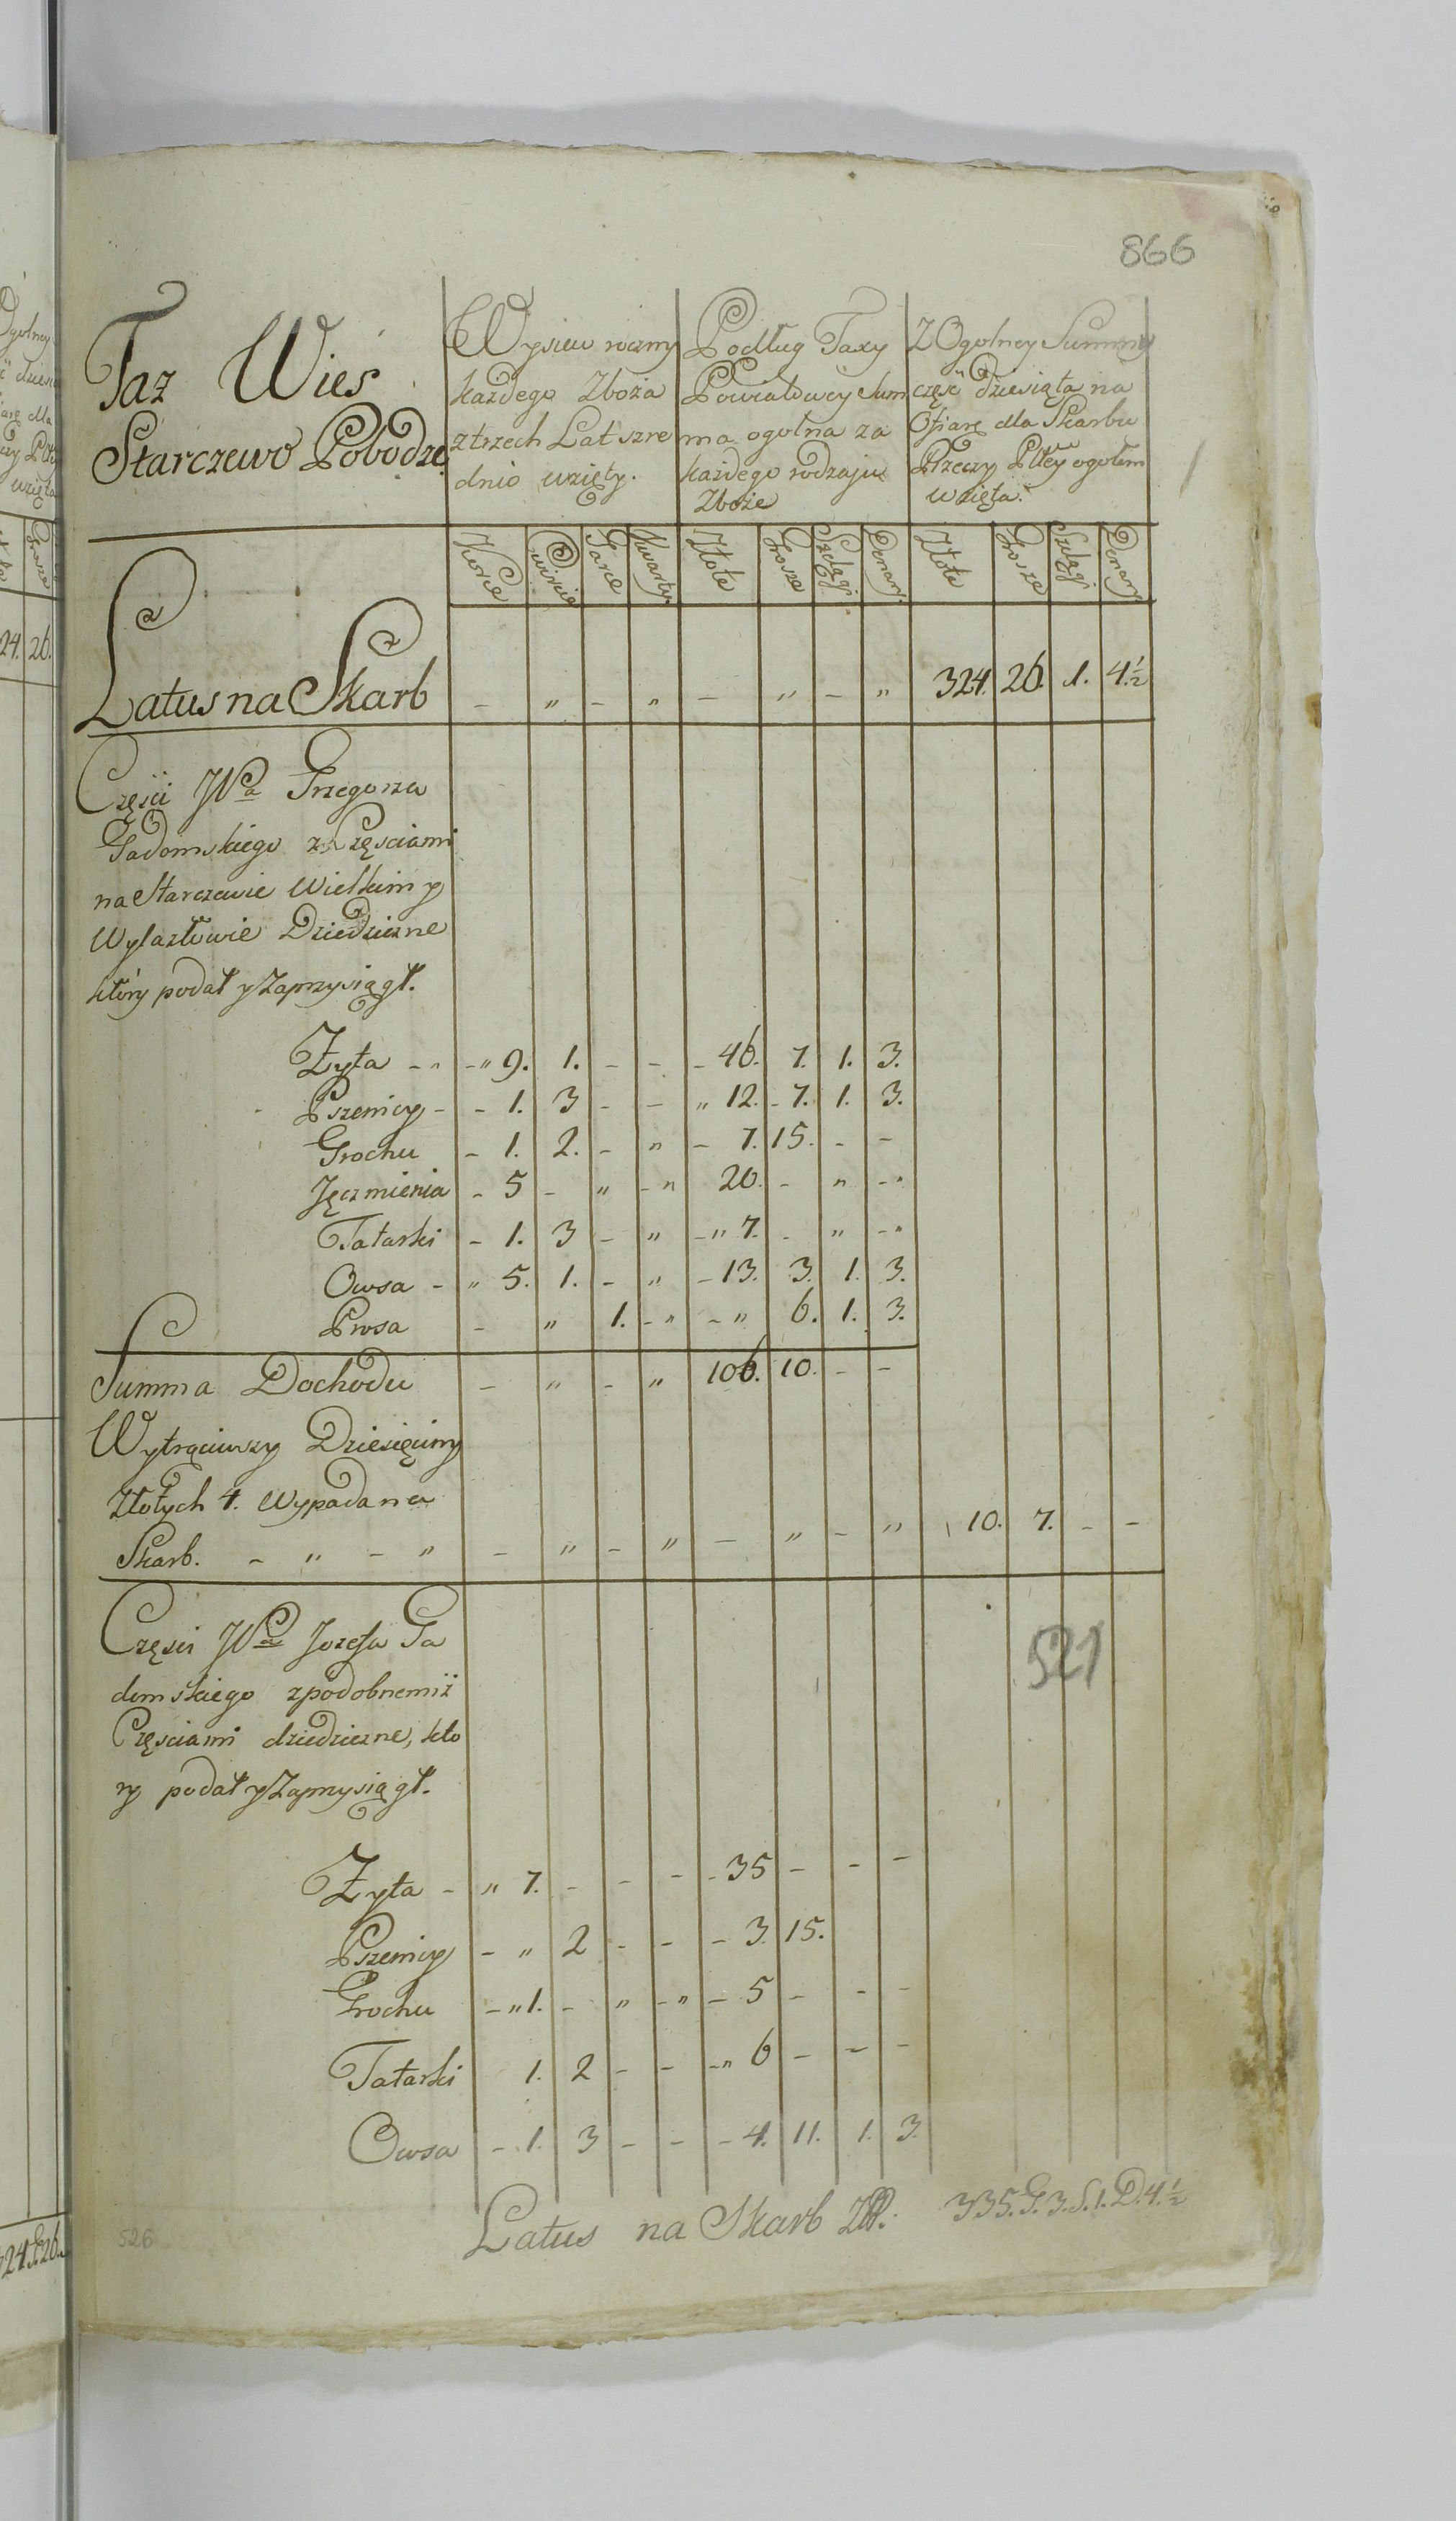 866
Taż Wieś
Starczewo Pobodze
Wysiew roczny
każdego Zboża
z trzech Lat szre
dnio wzięty.
Podług Taxy
Powiatowey Sum
ma ogolna za
każdego rodzaju
Zboże
Z Ogolney Summy
część dziesiąta na
Ofiarę dla Skarbu
Rzeczy Pltey ogołem
wzięta.
Korce Cwircie Garce Kwarty Złote Grosze Szelągi Denary Złote Grosze Szelągi Denary
Latus na Skarb - " - " - " - " 324. 26. 1. 4.½
Części JPa Grzegorza
Gadomskiego z Częściami
na Starczewie Wielkim y
Wylazłowie Dziedziczne
który podał y Zaprzysiągł.
Żyta - " - " 9. 1. - - - 46. 7. 1. 3.
Pszenicy - - 1. 3 - - " 12. - 7. 1. 3.
Grochu - 1. 2. - " - 7. 15. - -
Jęczmienia - 5 - " - " 20. - " - "
Tatarki - 1. 3 - " - " 7. - " - "
Owsa - " 5. 1. - " - 13. 3. 1. 3.
Prosa - " 1. - " - " 6. 1. 3.
Summa Dochodu - " - " 106. 10. - -
Wytrąciwszy Dziesięciny
Złotych 4. wypada na
Skarb. - " - " - " - " - " - " 10. 7. - -
Części JPa Jozefa Ga
domskiego z podobnemiż
Częściami dziedziczne, kto
ry podał y Zaprzysiągł.
521
Żyta - " 7. - - - - 35 - - -
Pszenicy - " 2 - - - 3. 15.
Grochu - " 1. - " - " - 5 - - -
Tatarki 1. 2 - - - " 6 - - -
Owsa - 1. 3 - - - 4. 11. 1. 3.
Latus na Skarb ZłP. 335. G. 3. S. 1. D. 4.½
526